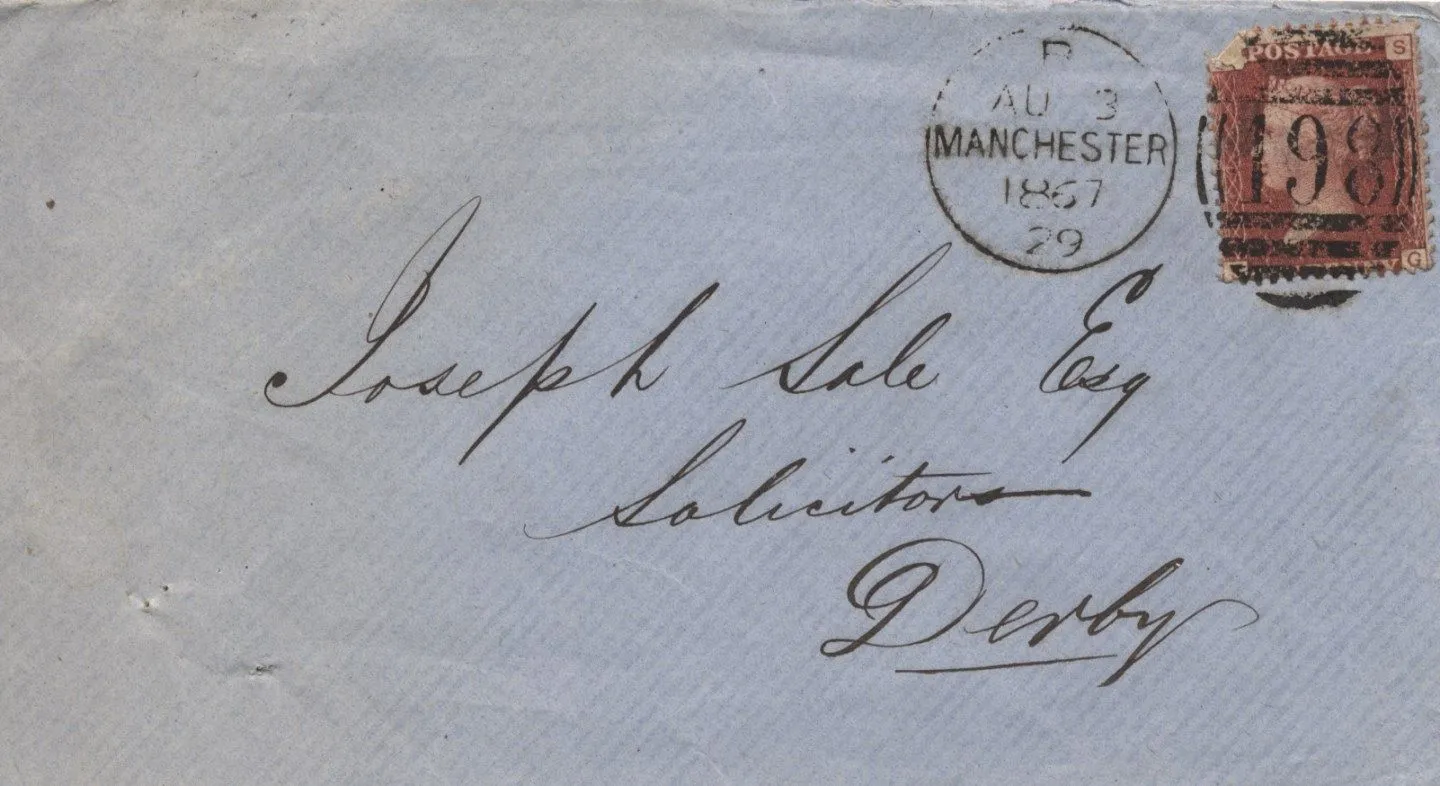 POSTAGE S
AU 3
MANCHESTER
1867
29
198
G
Joseph Sale Esq
Solicitors
Derby